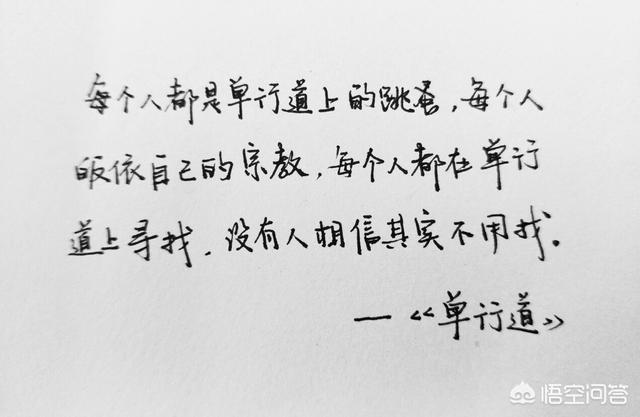 每个人都是单行道上的跳蚤，每个人
皈依自己的宗教，每个人都在单行
道上寻找，没有人相信其实不用找。
—《单行道》
悟空问答